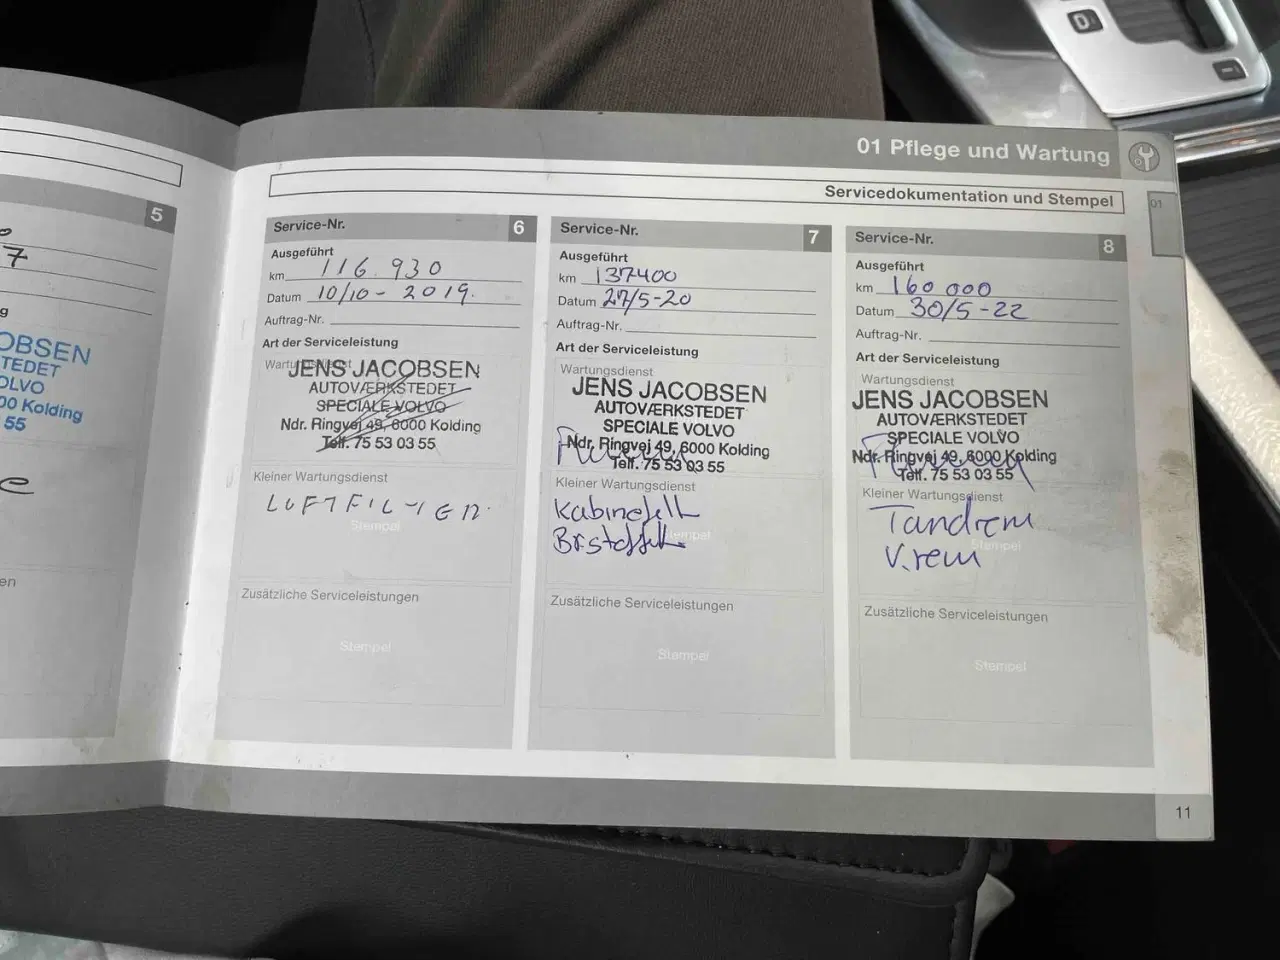 5
7
g
OBSEN
TEDET
OLVO
00 Kolding
55
e
en
01 Pflege und Wartung
Servicedokumentation und Stempel
01
Service-Nr. 6
Ausgeführt
km 116.930
Datum 10/10-2019.
Auftrag-Nr.
Art der Serviceleistung
Wartungsdienst
JENS JACOBSEN
AUTOVÆRKSTEDET
SPECIALE VOLVO
Ndr. Ringvej 49, 6000 Kolding
Telf. 75 53 03 55
Kleiner Wartungsdienst
LUFTFILTER
Stempel
Zusätzliche Serviceleistungen
Stempel
Service-Nr. 7
Ausgeführt
km 137400
Datum 27/5-20
Auftrag-Nr.
Art der Serviceleistung
Wartungsdienst
JENS JACOBSEN
AUTOVÆRKSTEDET
SPECIALE VOLVO
Ndr. Ringvej 49, 6000 Kolding
Telf. 75 53 03 55
Kleiner Wartungsdienst
Kabinefilt
Stempel
Zusätzliche Serviceleistungen
Stempel
Service-Nr. 8
Ausgeführt
km 160 000
Datum 30/5-22
Auftrag-Nr.
Art der Serviceleistung
Wartungsdienst
JENS JACOBSEN
AUTOVÆRKSTEDET
SPECIALE VOLVO
Ndr. Ringvej 49, 6000 Kolding
Telf. 75 53 03 55
Kleiner Wartungsdienst
Tandrem
Stempel
V.rem
Zusätzliche Serviceleistungen
Stempel
11